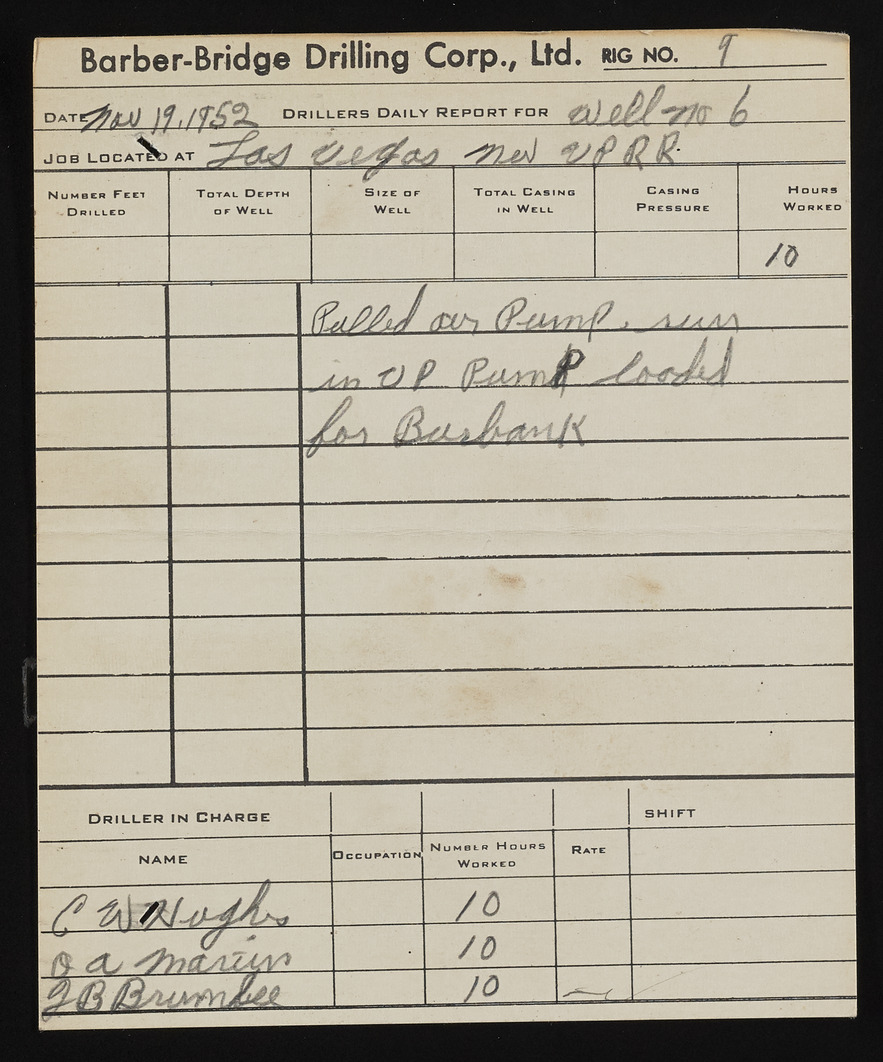 Barber-Bridge Drilling Corp., Ltd. RIG NO. 9
DATE Nov 19, 1952 DRILLERS DAILY REPORT FOR Well no 6
JOB LOCATED AT Las Vegas Nev UPRR
NUMBER FEET DRILLED TOTAL DEPTH OF WELL SIZE OF WELL TOTAL CASING IN WELL CASING PRESSURE HOURS WORKED
10
Pulled our Pump. run
in UP Pump loaded
for Burbank
DRILLER IN CHARGE SHIFT
NAME OCCUPATION NUMBER HOURS WORKED RATE
C W Hughs 10
O a Martin 10
J B Brumbee 10